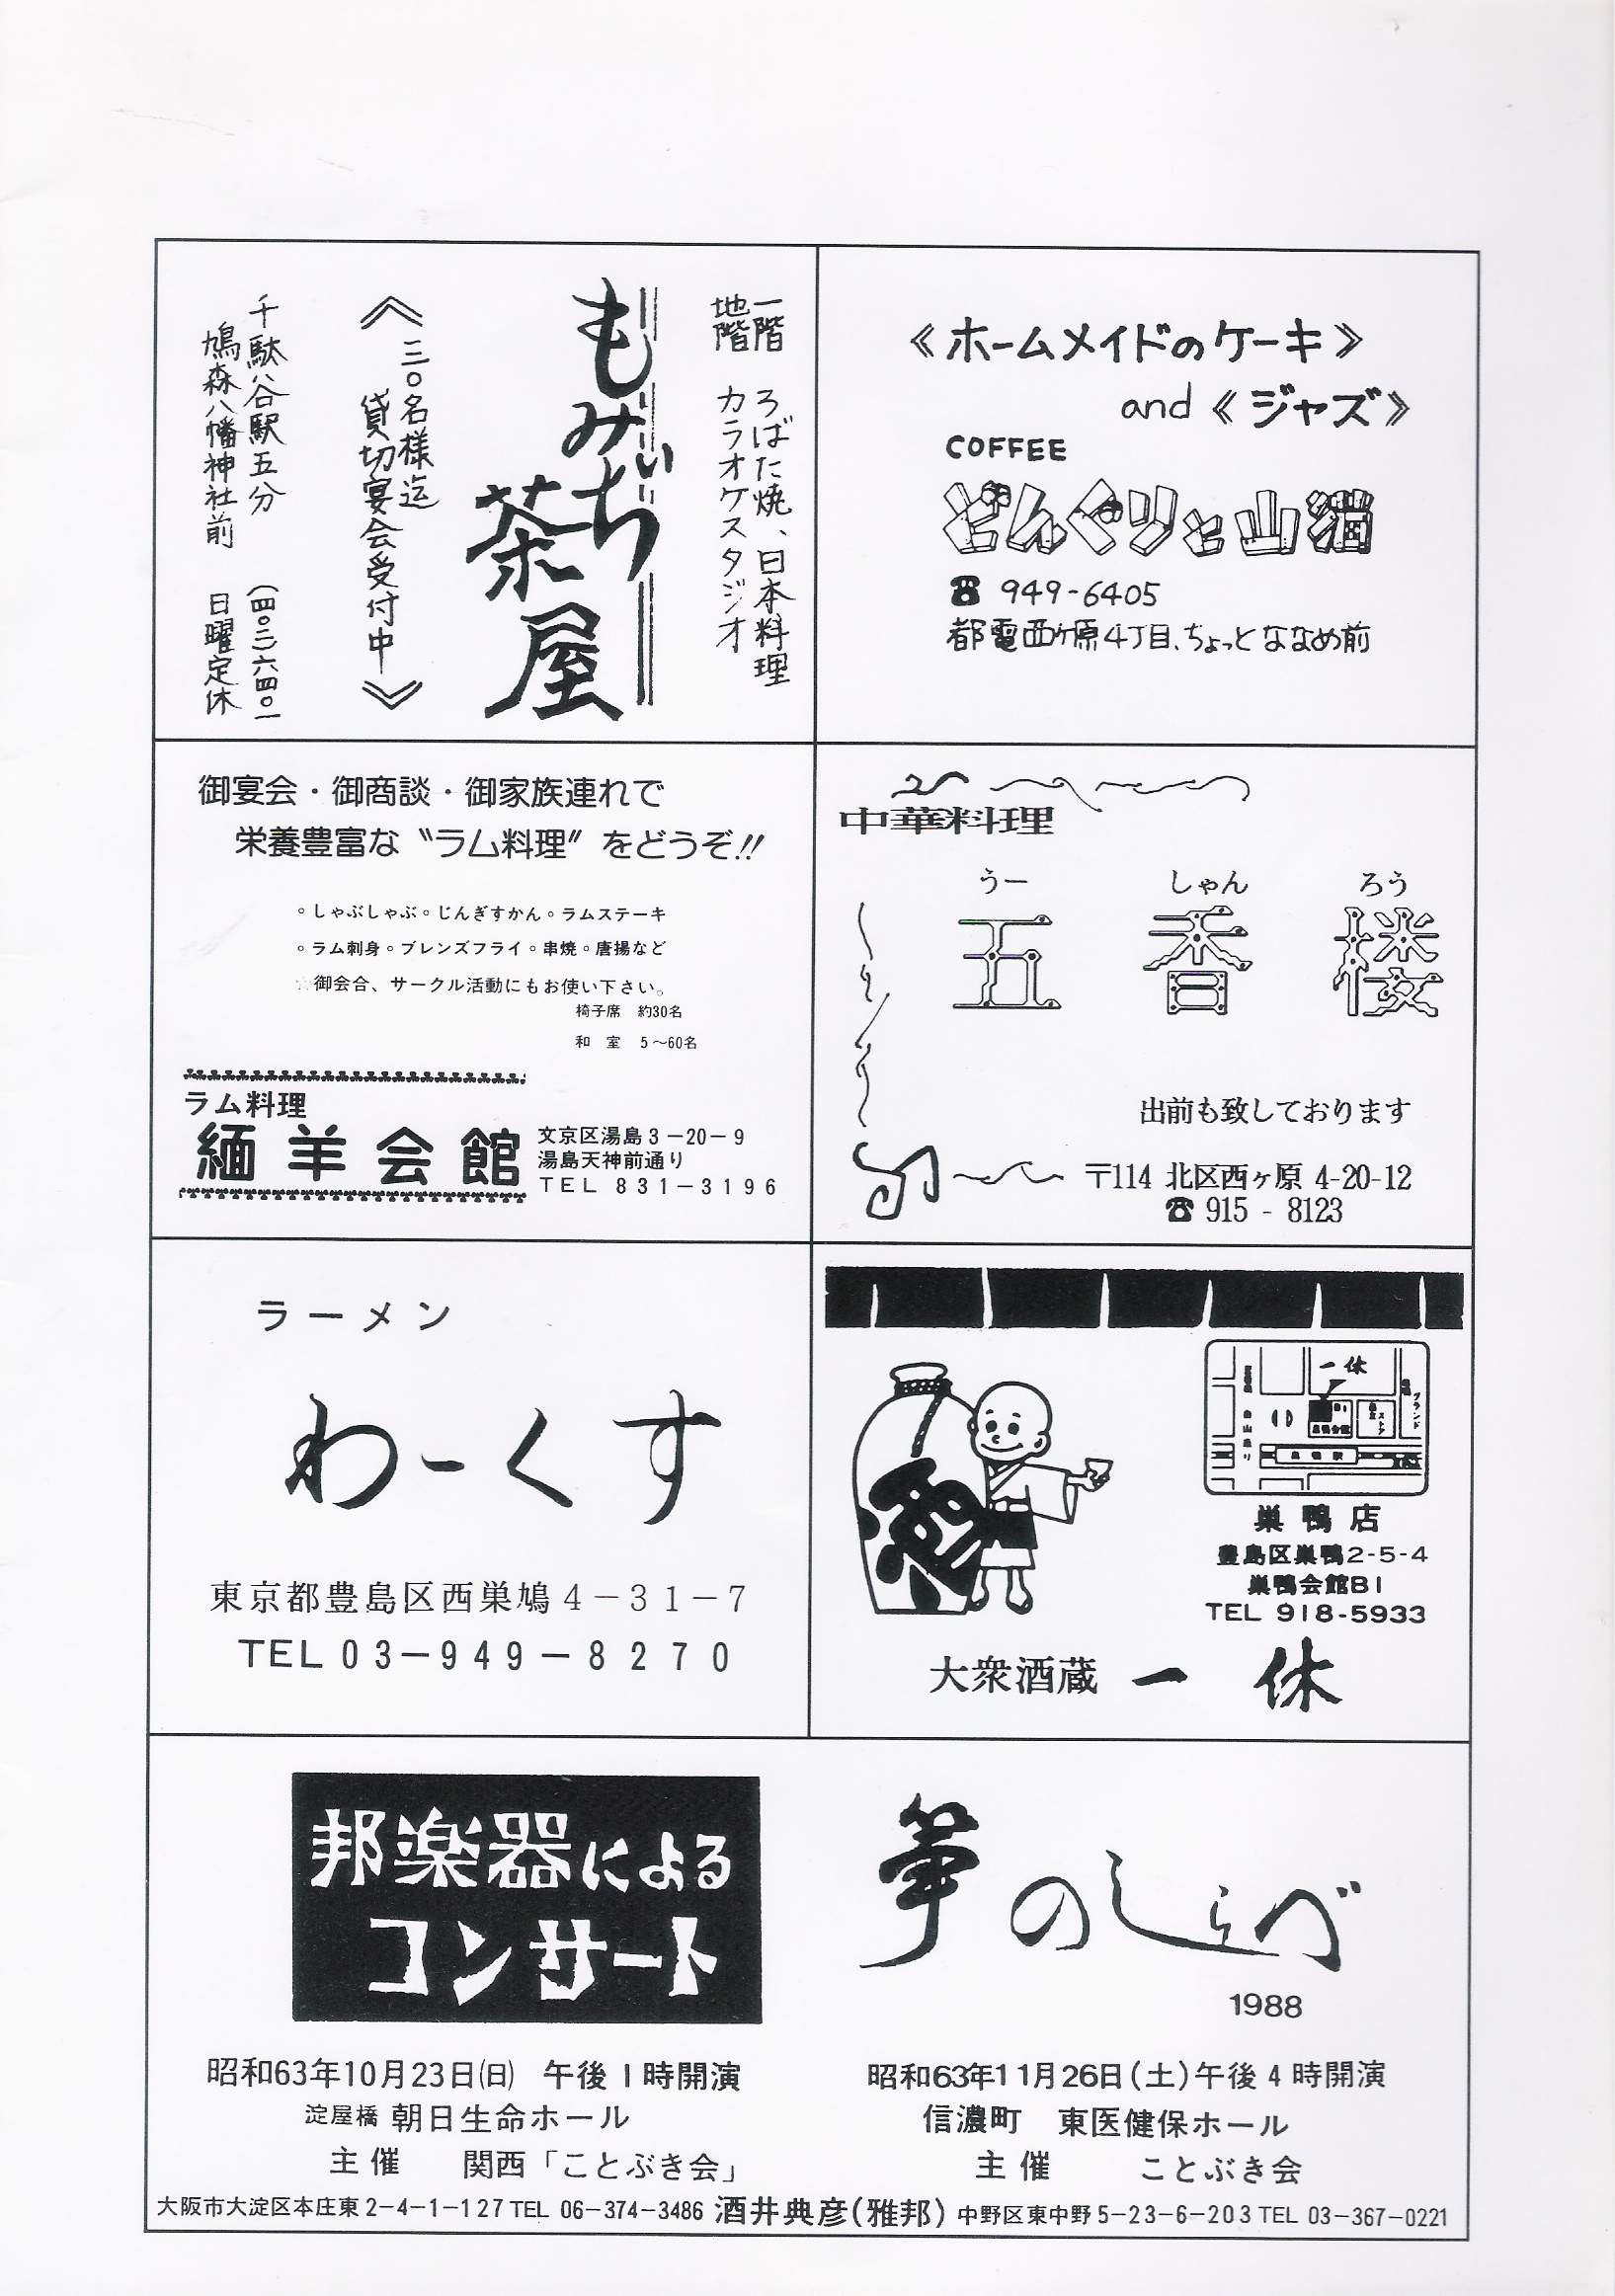 一階 ろばた焼、日本料理
地階 カラオケスタジオ
もみぃぢ
茶屋
《三〇名様迄
貸切宴会受付中》
千駄谷駅五分 (四〇三)六四〇一
鳩森八幡神社前 日曜定休
《ホームメイドのケーキ》
and《ジャズ》
COFFEE
どんぐりと山猫
☎ 949-6405
都電西ヶ原4丁目、ちょっとななめ前
御宴会・御商談・御家族連れで
栄養豊富な〝ラム料理〟をどうぞ!!
◦しゃぶしゃぶ◦じんぎすかん◦ラムステーキ
◦ラム刺身◦ブレンズフライ◦串焼◦唐揚など
☆御会合、サークル活動にもお使い下さい。
椅子席 約30名
和室 5〜60名
ラム料理
緬羊会館
文京区湯島3-20-9
湯島天神前通り
TEL 831-3196
中華料理
うー しゃん ろう
五香楼
出前も致しております
〒114 北区西ヶ原 4-20-12
☎ 915 - 8123
ラーメン
わーくす
東京都豊島区西巣鳩4-31-7
TEL 03-949-8270
酒
一休
白山通り
巣鴨会館
B1
巣鴨駅
巣鴨店
豊島区巣鴨2-5-4
巣鴨会館B1
TEL 918-5933
大衆酒蔵 一休
邦楽器による
コンサート
昭和63年10月23日(日) 午後1時開演
淀屋橋 朝日生命ホール
主催 関西「ことぶき会」
箏のしらべ
1988
昭和63年11月26日(土)午後4時開演
信濃町 東医健保ホール
主催 ことぶき会
大阪市大淀区本庄東2-4-1-127 TEL 06-374-3486 酒井典彦(雅邦) 中野区東中野5-23-6-203 TEL 03-367-0221